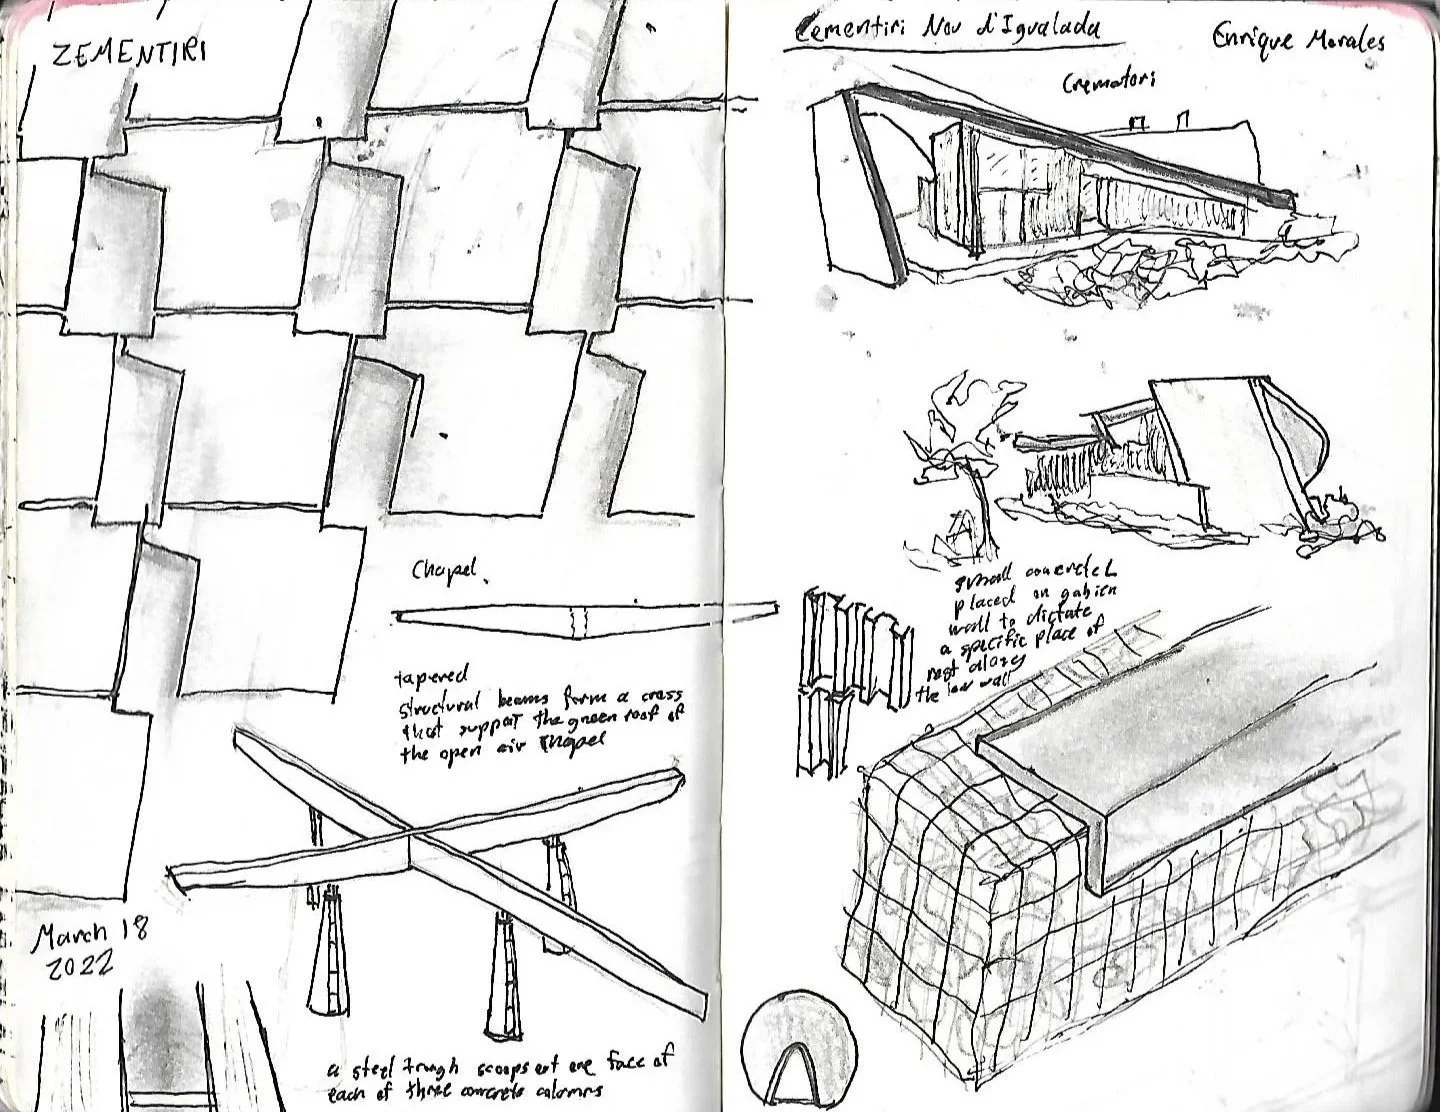 ZEMENTIRI
Chapel.
tapered
structural beams form a cross
that support the green roof of
the open air chapel
March 18
2022
a steel trough scoops out one face of
each of three concrete columns
Cementiri Nou d'Igualada
Enrique Morales
Crematori
small concrete L
placed on gabion
wall to dictate
a specific place of
rest along
the low wall